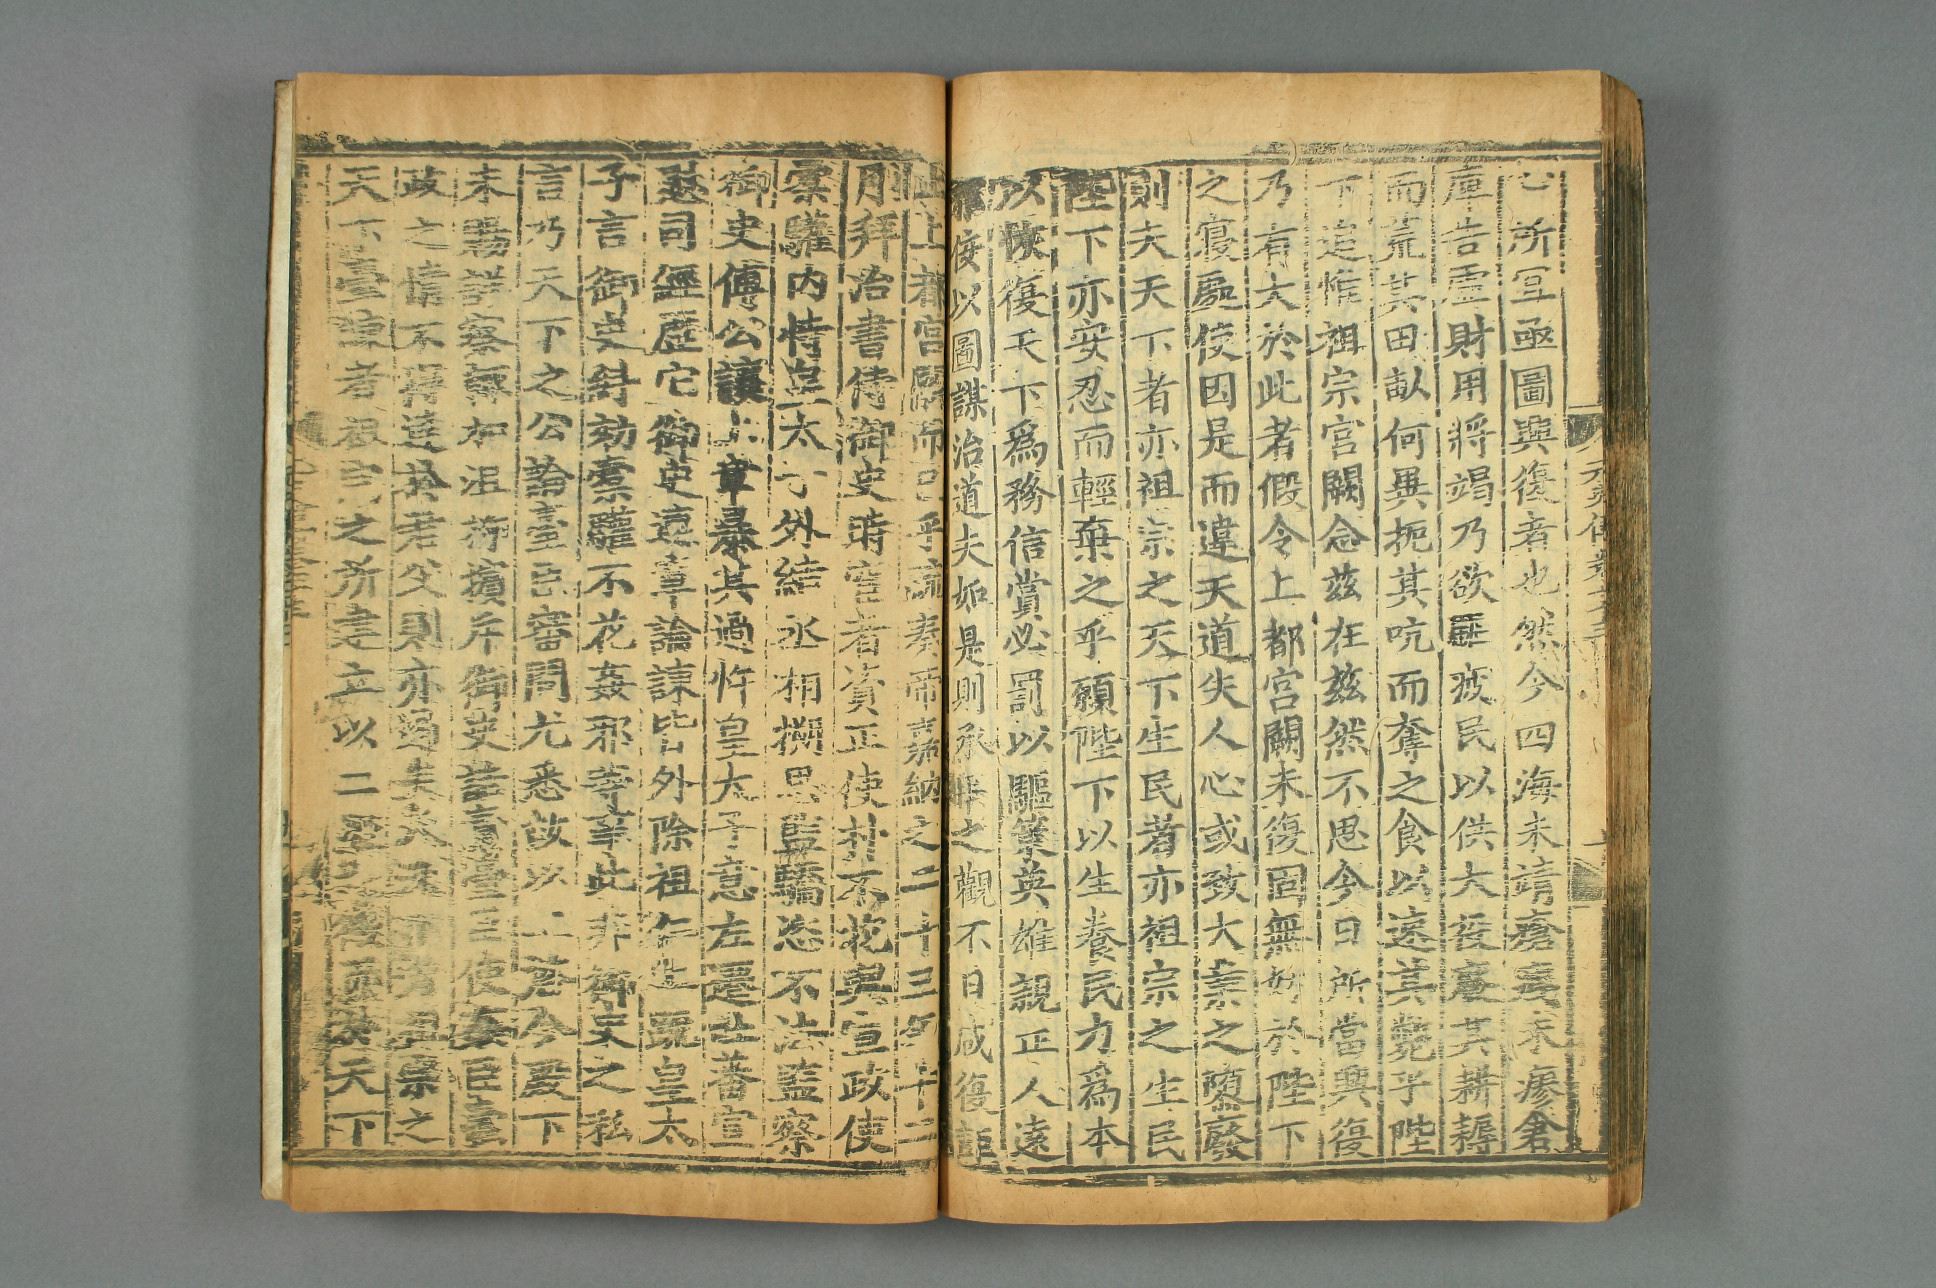 心所宜亟圖興復者也然今四海未靖瘡痍未瘳倉
庫告虛財用將竭乃欲驅疲民以供大役廢其耕耨
而荒其田畝何異扼其吭而奪之食以速其斃乎陛
下追惟祖宗宮闕念茲在茲然不思今日所當興復
乃有大於此者假令上都宮闕未復固無妨於陛下
之寢處使因是而違天道失人心或致大業之隳廢
則夫天下者亦祖宗之天下生民者亦祖宗之生民
陛下亦安忍而輕棄之乎願陛下以生養民力為本
以恢復天下為務信賞必罰以驅策英雄親正人遠
佞以圖謀治道夫如是則承平之觀不日咸復詎
止上都宮闕而已乎疏奏帝嘉納之二十三年十二
月拜治書侍御史時宦者資正使朴不花與宣政使
槖驩內恃皇太子外結丞相搠思監驕恣不法監察
御史傅公讓上章暴其過忤皇太子意左遷吐蕃宣
慰司經歷它御史連章論諫皆外除祖仁上疏皇太
子言御史糾劾槖驩不花姦邪等事此非御史之私
言乃天下之公論臺臣審問尤悉故以上啓今殿下
未賜詳察輒加沮抑擯斥御史詰責臺臣使姦臣蠹
政之情不得達於君父則亦過矣夫
天下臺諫者祖宗之所建立以二
天下